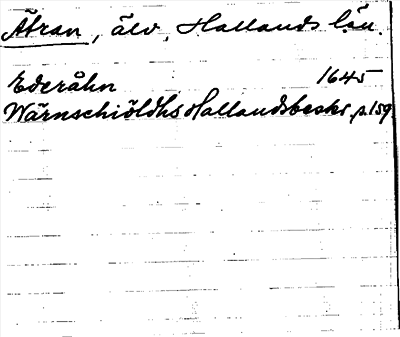 Ätran, älv, Hallands län.
Ederåhn 1645
Wärnschiöldhs Hallandsbeskr. p. 159.